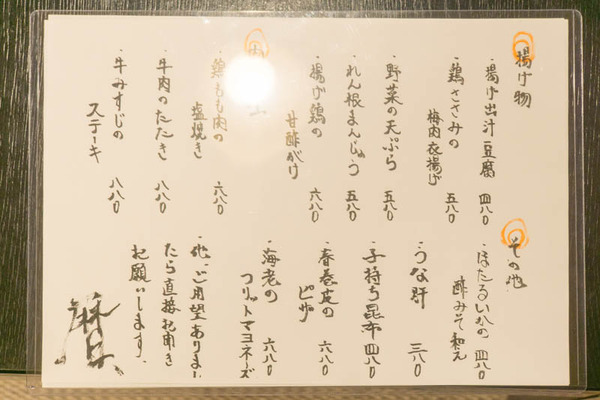 揚げ物
・揚げ出汁豆腐 四八〇
・鶏ささみの
梅肉衣揚げ 五八〇
・野菜の天ぷら 五八〇
・れん根まんじゅう 五八〇
・揚げ鶏の
甘酢がけ 六八〇
・鶏もも肉の
塩焼き 六八〇
・牛肉のたたき 八八〇
・牛みすじの
ステーキ 八八〇
その他
・ほたるいかの
酢みそ和え 四八〇
・うな肝 三八〇
・子持ち昆布 四八〇
・春巻皮の
ピザ 六八〇
・海老の
フリットマヨネーズ 六八〇
・他、ご用望ありまし
たら直接お聞き
お願いします。